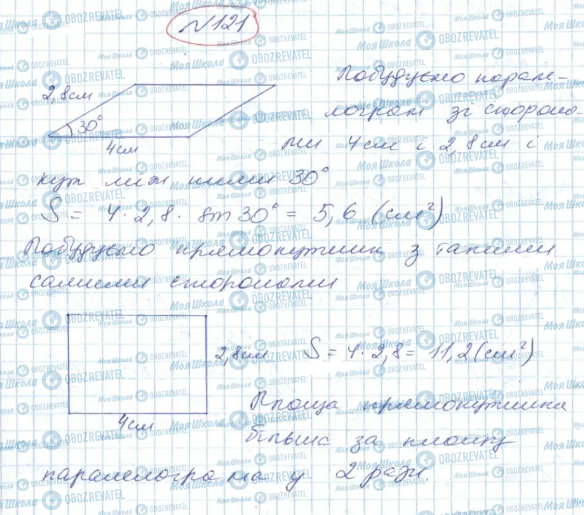 №121
2,8см
30°
4см
Побудуємо парале-
лограм зі сторона-
ми 4см і 2,8см і
кут між ними 30°
S = 4·2,8·sin30° = 5,6 (см²)
Побудуємо прямокутник з такими
самими сторонами
2,8см
4см
S = 4·2,8 = 11,2(см²)
Площа прямокутника
більша за площу
паралелограма у 2 рази.